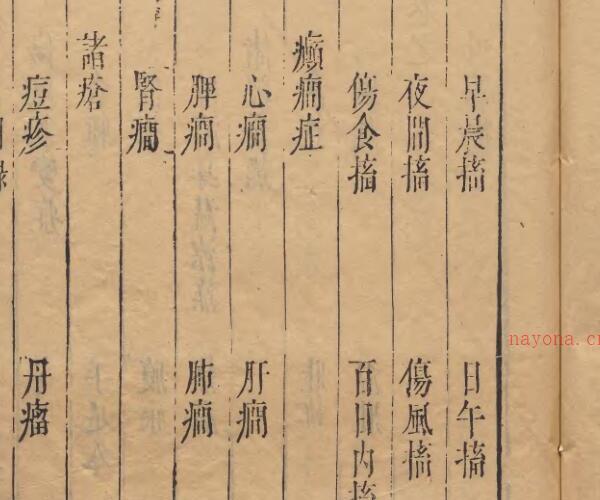 早晨搐 日午搐
夜間搐 傷風搐
傷食搐 百日內搐
癲癎症
心癎 肝癎
脾癎 肺癎
腎癎
諸瘡
痘疹 丹瘤
nayona.cn